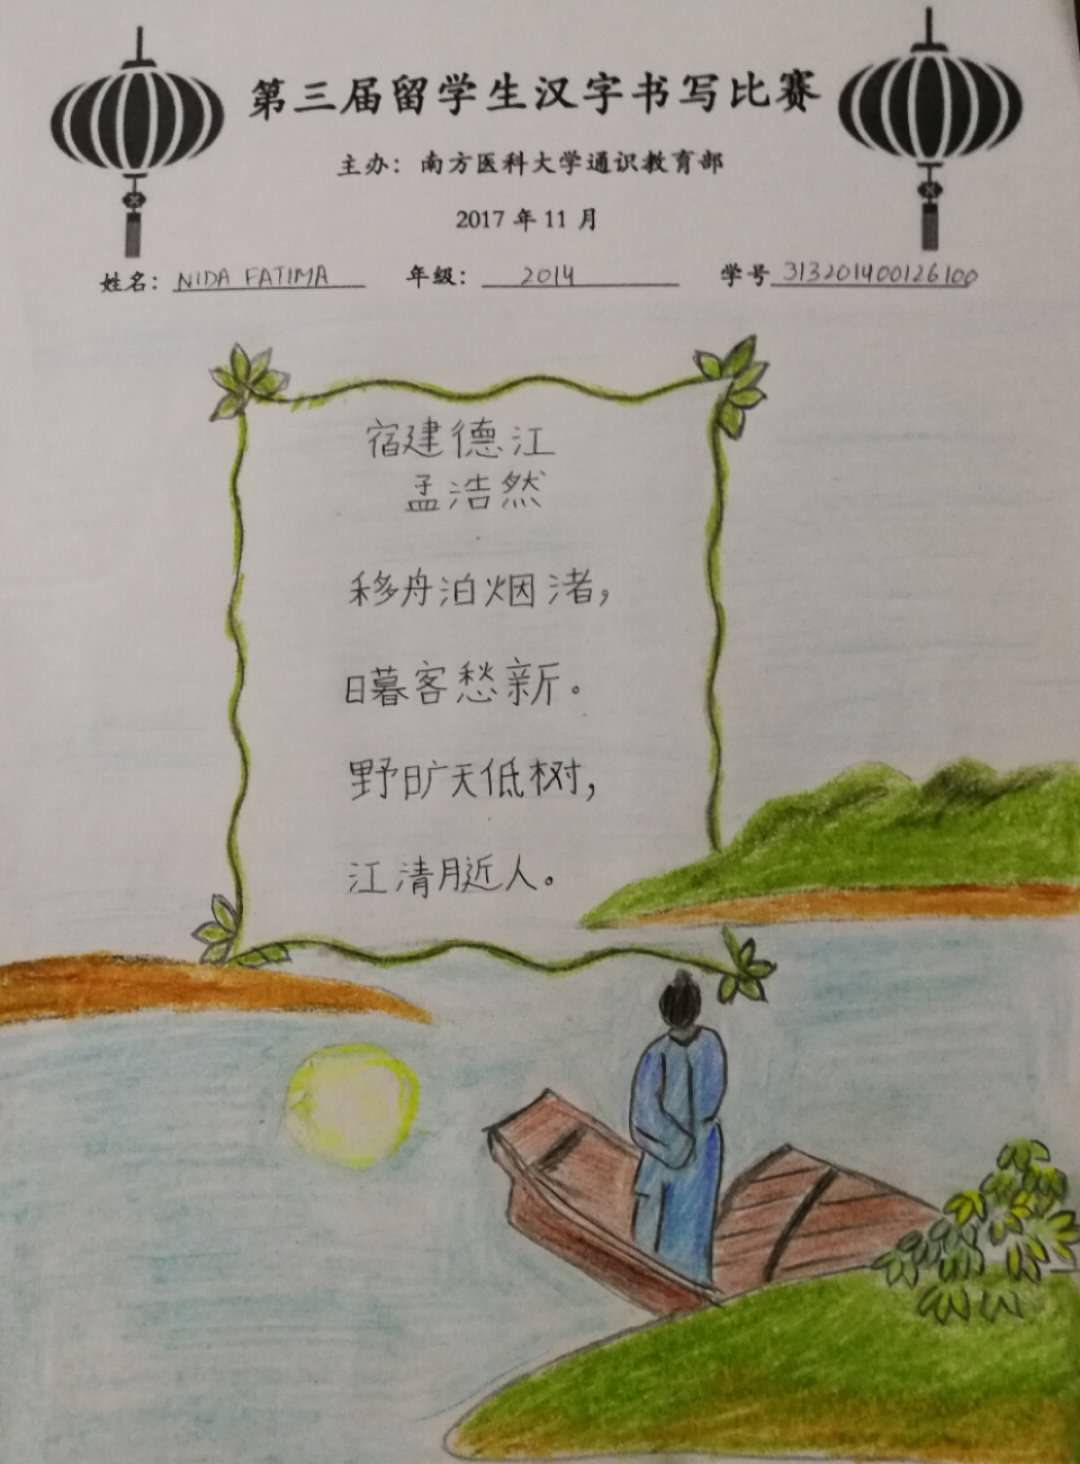 第三届留学生汉字书写比赛
主办：南方医科大学通识教育部
2017 年 11 月
姓名：NIDA FATIMA 年级：2014 学号 313201400126100
宿建德江
孟浩然
移舟泊烟渚，
日暮客愁新。
野旷天低树，
江清月近人。